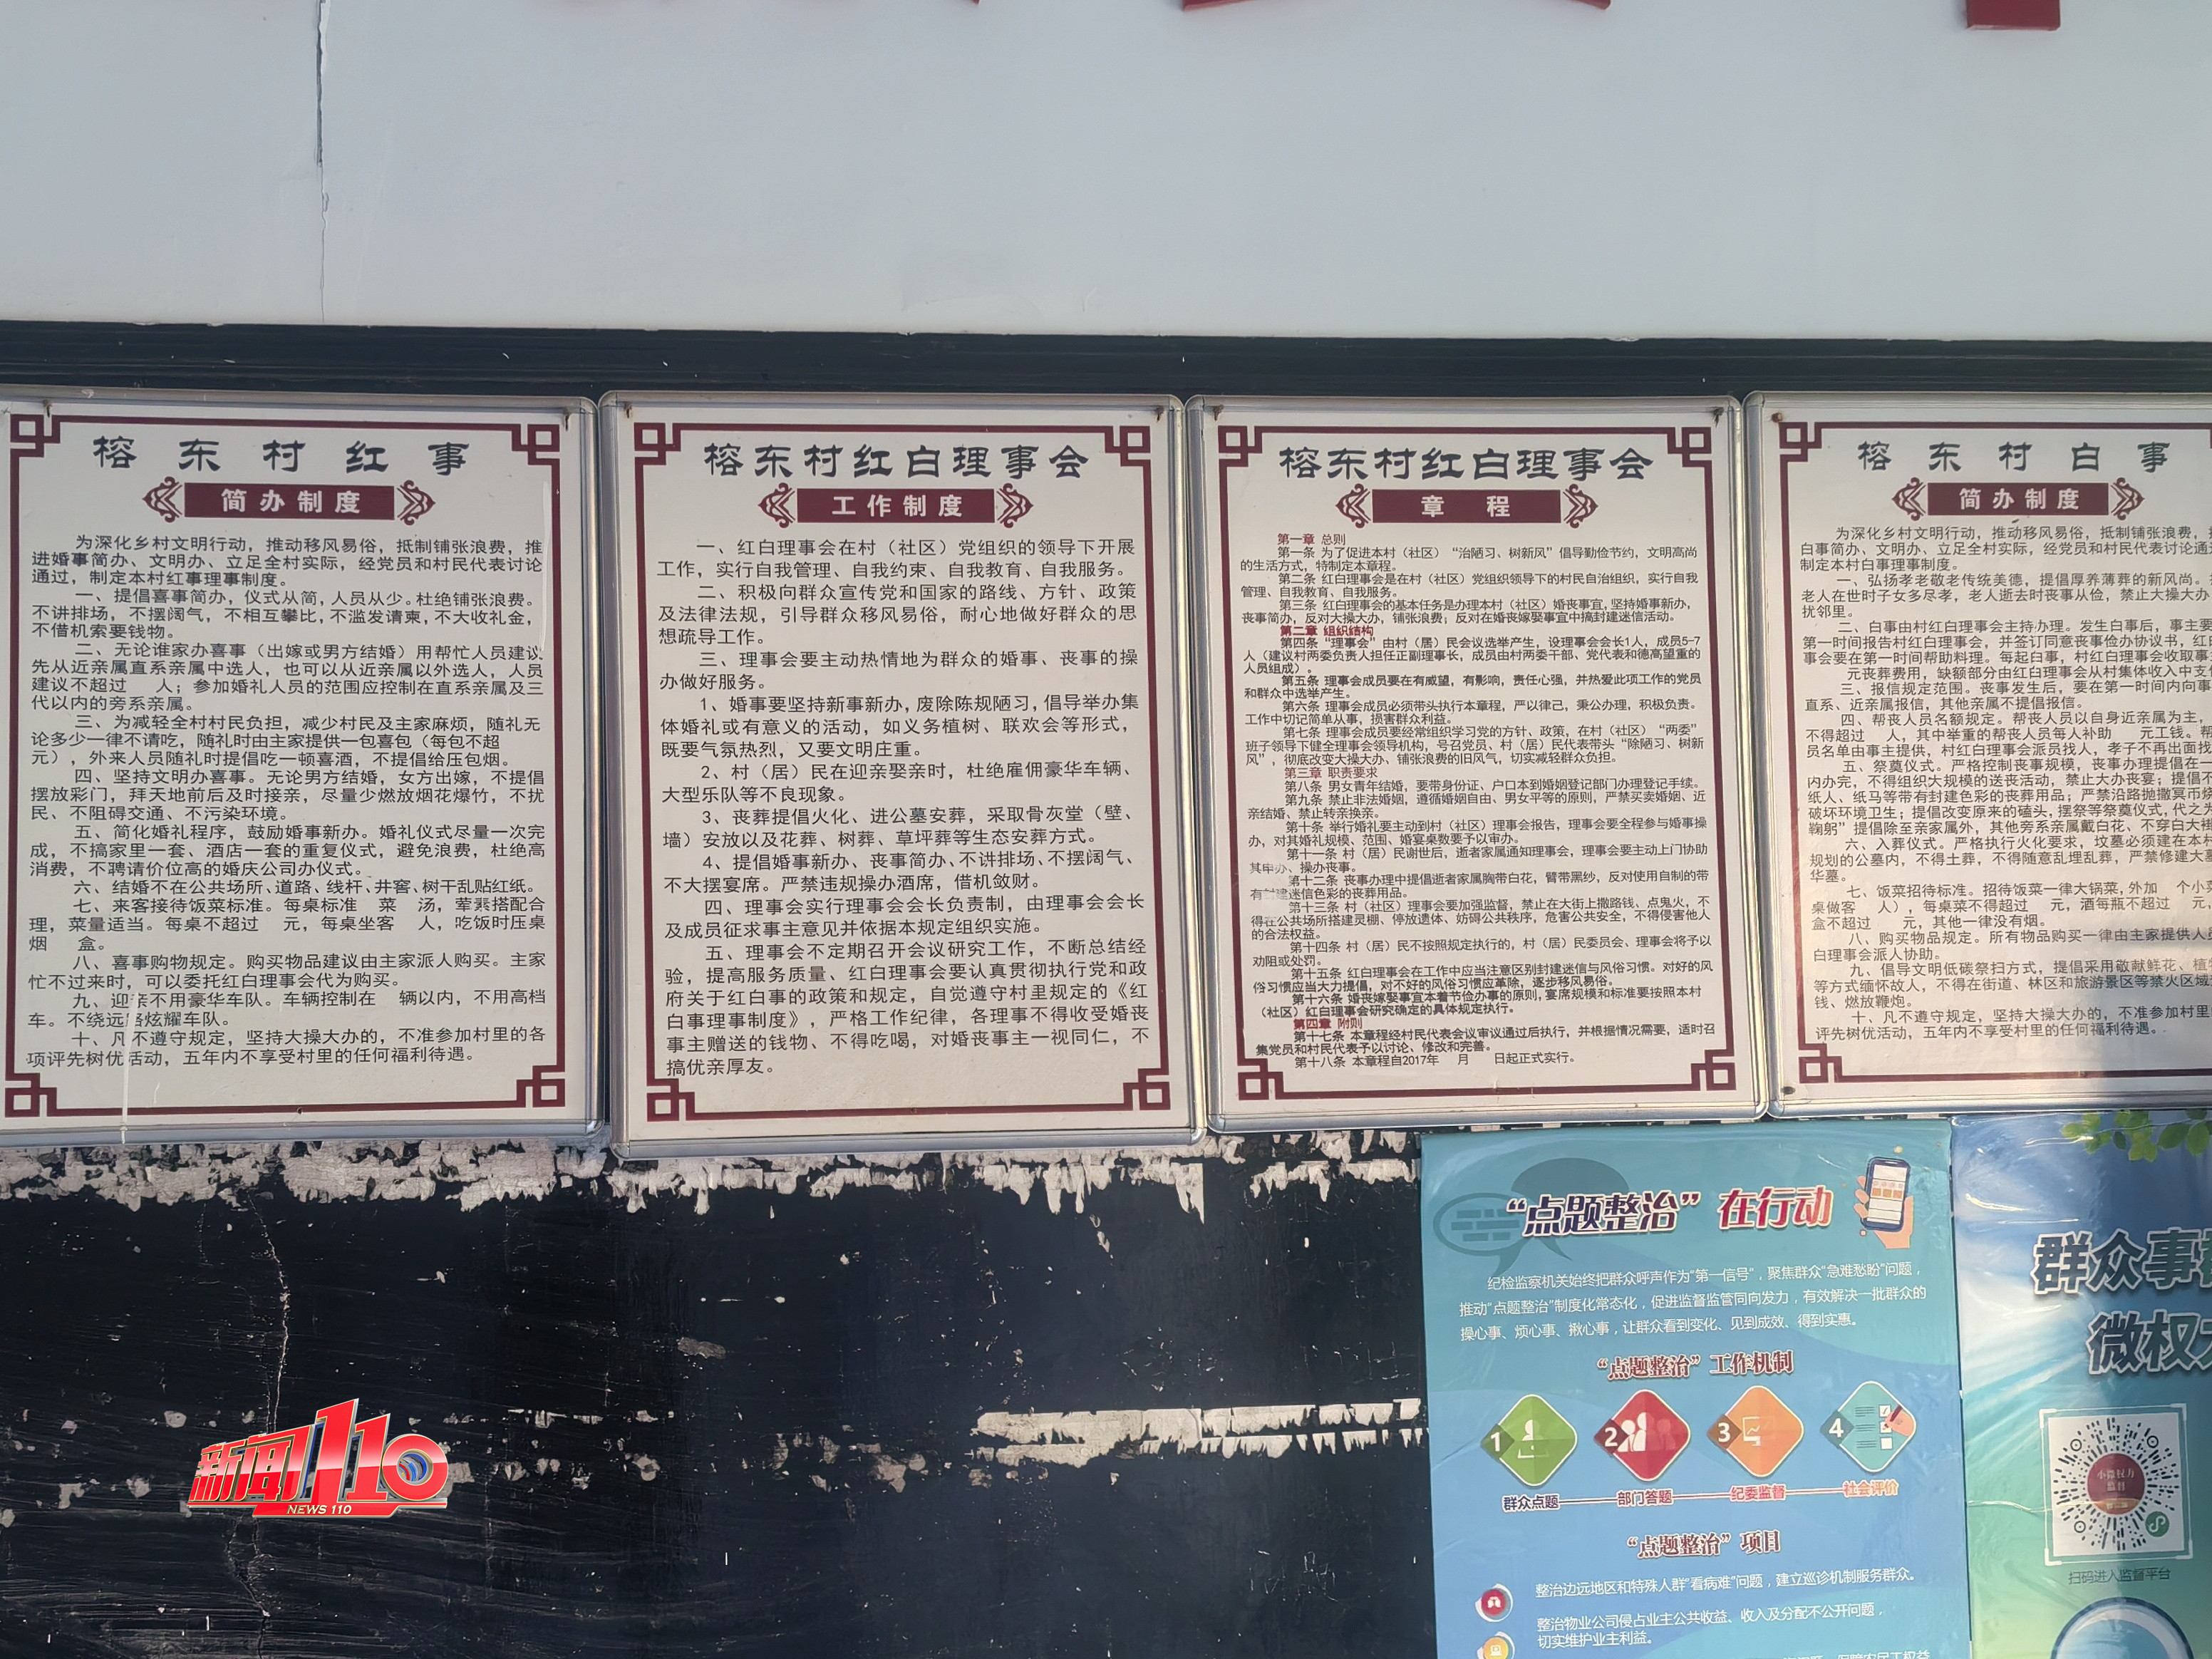 榕东村红事
简办制度
为深化乡村文明行动，推动移风易俗，抵制铺张浪费，推
进婚事简办、文明办、立足全村实际，经党员和村民代表讨论
通过，制定本村红事理事制度。
一、提倡喜事简办，仪式从简，人员从少。杜绝铺张浪费。
不讲排场，不摆阔气，不相互攀比，不滥发请柬，不大收礼金，
不借机索要钱物。
二、无论谁家办喜事（出嫁或男方结婚）用帮忙人员建议
先从近亲属直系亲属中选人，也可以从近亲属以外选人，人员
建议不超过 人；参加婚礼人员的范围应控制在直系亲属及三
代以内的旁系亲属。
三、为减轻全村村民负担，减少村民及主家麻烦，随礼无
论多少一律不请吃，随礼时由主家提供一包喜包（每包不超
元），外来人员随礼时提倡吃一顿喜酒，不提倡给压包烟。
四、坚持文明办喜事。无论男方结婚，女方出嫁，不提倡
摆放彩门，拜天地前后及时接亲，尽量少燃放烟花爆竹，不扰
民、不阻碍交通、不污染环境。
五、简化婚礼程序，鼓励婚事新办。婚礼仪式尽量一次完
成，不搞家里一套、酒店一套的重复仪式，避免浪费，杜绝高
消费，不聘请价位高的婚庆公司办仪式。
六、结婚不在公共场所、道路、线杆、井窖、树干乱贴红纸。
七、来客接待饭菜标准。每桌标准 菜 汤，荤素搭配合
理，菜量适当。每桌不超过 元，每桌坐客 人，吃饭时压桌
烟 盒。
八、喜事购物规定。购买物品建议由主家派人购买。主家
忙不过来时，可以委托红白理事会代为购买。
九、迎亲不用豪华车队。车辆控制在 辆以内，不用高档
车。不绕远路炫耀车队。
十、凡不遵守规定，坚持大操大办的，不准参加村里的各
项评先树优活动，五年内不享受村里的任何福利待遇。
榕东村红白理事会
工作制度
一、红白理事会在村（社区）党组织的领导下开展
工作，实行自我管理、自我约束、自我教育、自我服务。
二、积极向群众宣传党和国家的路线、方针、政策
及法律法规，引导群众移风易俗，耐心地做好群众的思
想疏导工作。
三、理事会要主动热情地为群众的婚事、丧事的操
办做好服务。
1、婚事要坚持新事新办，废除陈规陋习，倡导举办集
体婚礼或有意义的活动，如义务植树、联欢会等形式，
既要气氛热烈，又要文明庄重。
2、村（居）民在迎亲娶亲时，杜绝雇佣豪华车辆、
大型乐队等不良现象。
3、丧葬提倡火化、进公墓安葬，采取骨灰堂（壁、
墙）安放以及花葬、树葬、草坪葬等生态安葬方式。
4、提倡婚事新办、丧事简办、不讲排场、不摆阔气、
不大摆宴席。严禁违规操办酒席，借机敛财。
四、理事会实行理事会会长负责制，由理事会会长
及成员征求事主意见并依据本规定组织实施。
五、理事会不定期召开会议研究工作，不断总结经
验，提高服务质量、红白理事会要认真贯彻执行党和政
府关于红白事的政策和规定，自觉遵守村里规定的《红
白事理事制度》，严格工作纪律，各理事不得收受婚丧
事主赠送的钱物、不得吃喝，对婚丧事主一视同仁，不
搞优亲厚友。
榕东村红白理事会
章 程
第一章 总则
第一条 为了促进本村（社区）“治陋习、树新风”倡导勤俭节约，文明高尚
的生活方式，特制定本章程。
第二条 红白理事会是在村（社区）党组织领导下的村民自治组织，实行自我
管理、自我教育、自我服务。
第三条 红白理事会的基本任务是办理本村（社区）婚丧事宜，坚持婚事新办，
丧事简办，反对大操大办，铺张浪费；反对在婚丧嫁娶事宜中搞封建迷信活动。
第二章 组织结构
第四条“理事会”由村（居）民会议选举产生，设理事会会长1人，成员5-7
人（建议村两委负责人担任正副理事长，成员由村两委干部、党代表和德高望重的
人员组成）。
第五条 理事会成员要在有威望，有影响，责任心强，并热爱此项工作的党员
和群众中选举产生。
第六条 理事会成员必须带头执行本章程，严以律己，秉公办理，积极负责。
工作中切记简单从事，损害群众利益。
第七条 理事会成员要经常组织学习党的方针、政策，在村（社区）“两委”
班子领导下健全理事会领导机构，号召党员、村（居）民代表带头“除陋习、树新
风”，彻底改变大操大办、铺张浪费的旧风气，切实减轻群众负担。
第三章 职责要求
第八条 男女青年结婚，要带身份证、户口本到婚姻登记部门办理登记手续。
第九条 禁止非法婚姻，遵循婚姻自由、男女平等的原则，严禁买卖婚姻、近
亲结婚、禁止转亲换亲。
第十条 举行婚礼要主动到村（社区）理事会报告，理事会要全程参与婚事操
办，对其婚礼规模、范围、婚宴桌数要予以审办。
第十一条 村（居）民谢世后，逝者家属通知理事会，理事会要主动上门协助
其申办、操办丧事。
第十二条 丧事办理中提倡逝者家属胸带白花，臂带黑纱，反对使用自制的带
有封建迷信色彩的丧葬用品。
第十三条 村（社区）理事会要加强监督，禁止在大街上撒路钱、点鬼火，不
得在公共场所搭建灵棚、停放遗体、妨碍公共秩序，危害公共安全，不得侵害他人
的合法权益。
第十四条 村（居）民不按照规定执行的，村（居）民委员会、理事会将予以
劝阻或处罚。
第十五条 红白理事会在工作中应当注意区别封建迷信与风俗习惯。对好的风
俗习惯应当大力提倡，对不好的风俗习惯应革除，逐步移风易俗。
第十六条 婚丧嫁娶事宜本着节俭办事的原则，宴席规模和标准要按照本村
（社区）红白理事会研究确定的具体规定执行。
第四章 附则
第十七条 本章程经村民代表会议审议通过后执行，并根据情况需要，适时召
集党员和村民代表予以讨论、修改和完善。
第十八条 本章程自2017年 月 日起正式实行。
榕东村白事
简办制度
为深化乡村文明行动，推动移风易俗，抵制铺张浪费，
白事简办、文明办、立足全村实际，经党员和村民代表讨论通
制定本村白事理事制度。
一、弘扬孝老敬老传统美德，提倡厚养薄葬的新风尚。
老人在世时子女多尽孝，老人逝去时丧事从俭，禁止大操大办
扰邻里。
二、白事由村红白理事会主持办理。发生白事后，事主要
第一时间报告村红白理事会，并签订同意丧事俭办协议书，红
事会要在第一时间帮助料理。每起白事，村红白理事会收取事
元丧葬费用，缺额部分由红白理事会从村集体收入中支
三、报信规定范围。丧事发生后，要在第一时间内向事
直系、近亲属报信，其他亲属不提倡报信。
四、帮丧人员名额规定。帮丧人员以自身近亲属为主，
不得超过 人，其中举重的帮丧人员每人补助 元工钱。帮
员名单由事主提供，村红白理事会派员找人，孝子不再出面找
五、祭奠仪式。严格控制丧事规模，丧事办理提倡在一
内办完，不得组织大规模的送丧活动，禁止大办丧宴；提倡不
纸人、纸马等带有封建色彩的丧葬用品；严禁沿路抛撒冥币
破坏环境卫生；提倡改变原来的磕头，摆祭等祭奠仪式，代之
鞠躬”提倡除至亲家属外，其他旁系亲属戴白花、不穿白大褂
六、入葬仪式。严格执行火化要求，坟墓必须建在本村
规划的公墓内，不得土葬，不得随意乱埋乱葬，严禁修建大墓
华墓。
七、饭菜招待标准。招待饭菜一律大锅菜，外加 个小菜
桌做客 人），每桌菜不得超过 元，酒每瓶不超过 元，
盒不超过 元，其他一律没有烟。
八、购买物品规定。所有物品购买一律由主家提供人员
白理事会派人协助。
九、倡导文明低碳祭扫方式，提倡采用敬献鲜花、植
等方式缅怀故人，不得在街道、林区和旅游景区等禁火区域
钱、燃放鞭炮。
十、凡不遵守规定，坚持大操大办的，不准参加村里
评先树优活动，五年内不享受村里的任何福利待遇。
“点题整治”在行动
纪检监察机关始终把群众呼声作为“第一信号”，聚焦群众“急难愁盼”问题，
推动“点题整治”制度化常态化，促进监督监管同向发力，有效解决一批群众的
操心事、烦心事、揪心事，让群众看到变化、见到成效、得到实惠。
“点题整治”工作机制
1 2 3 4
群众点题 部门答题 纪委监督 社会评价
“点题整治”项目
整治边远地区和特殊人群“看病难”问题，建立巡诊机制服务群众。
整治物业公司侵占业主公共收益、收入及分配不公开问题，
切实维护业主利益。
群众事
微权
小微权力
监督
扫码进入监督平台
新闻110
NEWS 110